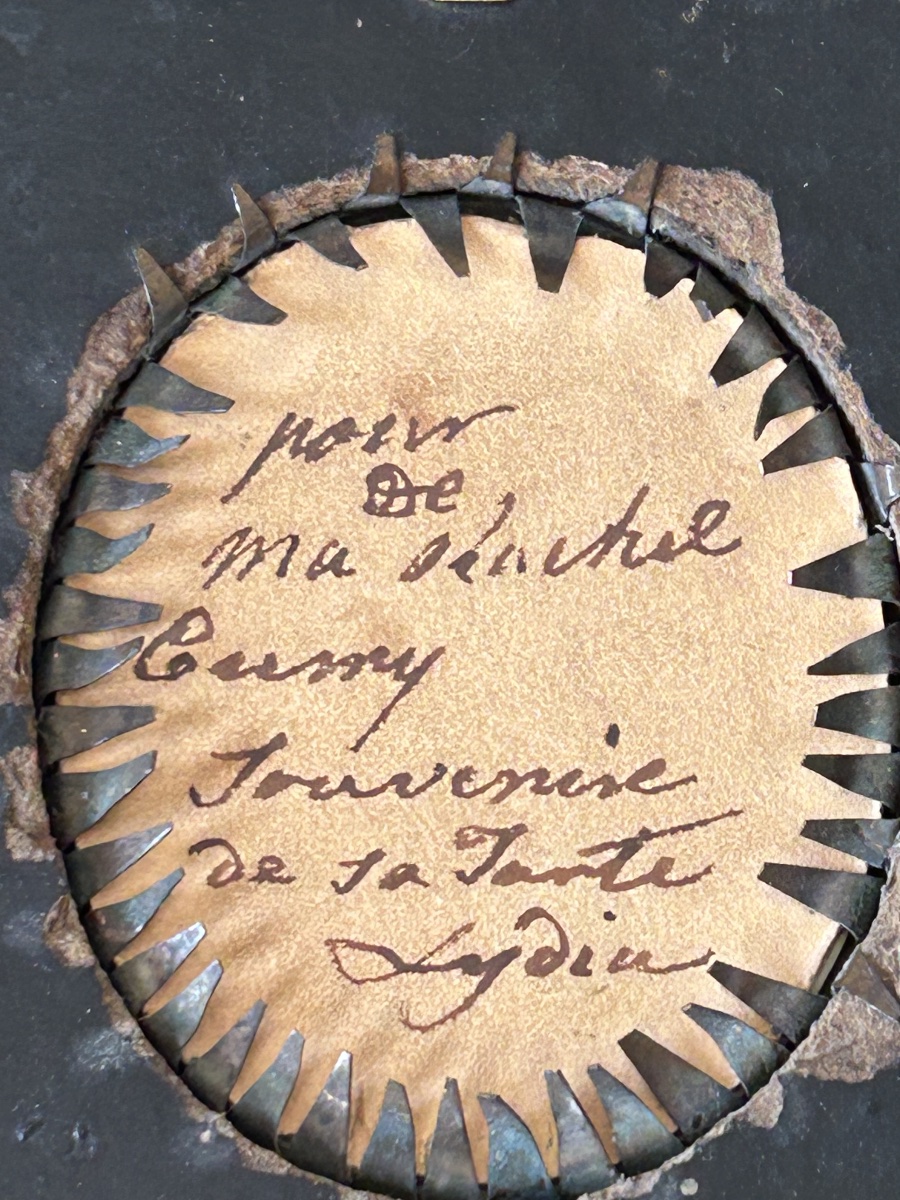 pour
De
ma Rachel
Cumy
Souvenire
de sa Tante
Lydia